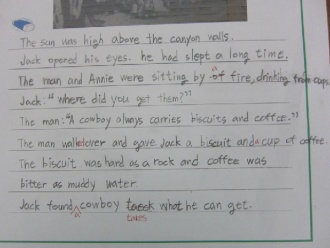 The sun was high above the canyon walls.
Jack opened his eyes. he had slept a long time.
The man and Annie were sitting by of a fire, drinking from cups.
Jack: "where did you get them?"
The man: "A cowboy always carries biscuits and coffee."
The man walked over and gave Jack a biscuit and a cup of coffee.
The biscuit was hard as a rock and coffee was
bitter as muddy water.
Jack found cowboy took what he can get.
takes